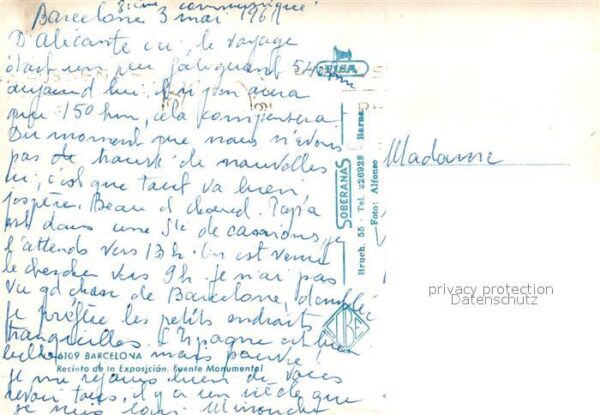 3ième communiqué!
Barcelone 3 mai 196
D'Alicante ici, le voyage
était un peu fatiguant 540 km
aujourd'hui il n'y en aura
que 150 km, cela compensera
Du moment que nous n'avons
pas de nouvelles
ici, c'est que tout va bien
j'espère. Beau et chaud.
est dans une Sté de camions je
l'attends vers 13 h. On est venu
le chercher vers 9h. Je n'ai pas
vu gd chose de Barcelone,
je préfère les petits endroits
tranquilles. L'Espagne est bien
belle mais pauvre!
Je me réjouis bien de vous
revoir tous, il y a un siècle que
je suis
Madame
SOBERANAS
Bruch, 55 - Tel. 226928 - Barna
Foto: Alfonso
6109 BARCELONA
Recinto de la Exposición. Fuente Monumental
privacy protection
Datenschutz